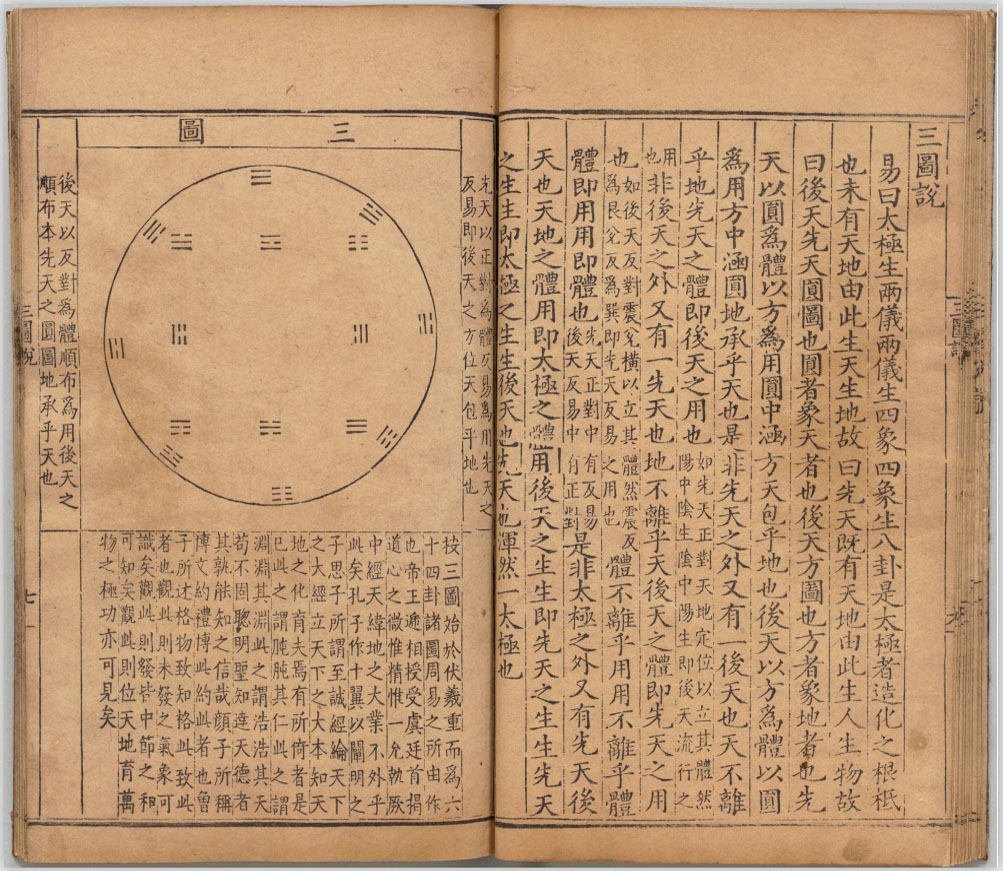 三圖說
易曰太極生兩儀兩儀生四象四象生八卦是太極者造化之根柢
也未有天地由此生天生地故曰先天既有天地由此生人生物故
曰後天先天圓圖也圓者象天者也後天方圖也方者象地者也先
天以圓為體以方為用圓中涵方天包乎地也後天以方為體以圓
為用方中涵圓地承乎天也是非先天之外又有一後天也天不離
乎地先天之體即後天之用也如先天正對天地定位以立其體然陽中陰生陰中陽生即後天流行之
用也非後天之外又有一先天也地不離乎天後天之體即先天之用
也如後天反對震兌橫以立其體然震反為艮兌反為巽即先天反易之用也體不離乎用用不離乎體
體即用用即體也先天正對中有反易後天反易中有正對是非太極之外又有先天後
天也天地之體用即太極之體用後天之生生即先天之生生先天
之生生即太極之生生後天也先天也渾然一太極也
三圖
先天以正對為體反易為用先天之
反易即後天之方位天包乎地也
後天以反對為體順布為用後天之
順布本先天之圓圖地承乎天也
按三圖始於伏羲重而為六
十四卦諸圖周易之所由作
也帝王遞相授受虞廷首揭
道心之微惟精惟一允執厥
中經天緯地之大業不外乎
此矣孔子作十翼以闡明之
子思子所謂至誠經綸天下
之大經立天下之大本知天
地之化育夫焉有所倚者是
已此之謂肫肫其仁此之謂
淵淵其淵此之謂浩浩其天
苟不固聰明聖知達天德者
其孰能知之信哉顏子所稱
博文約禮博此約此者也曾
子所述格物致知格此致此
者也觀此則未發之氣象可
識矣觀此則發皆中節之和
可知矣觀此則位天地育萬
物之極功亦可見矣
三圖說
七